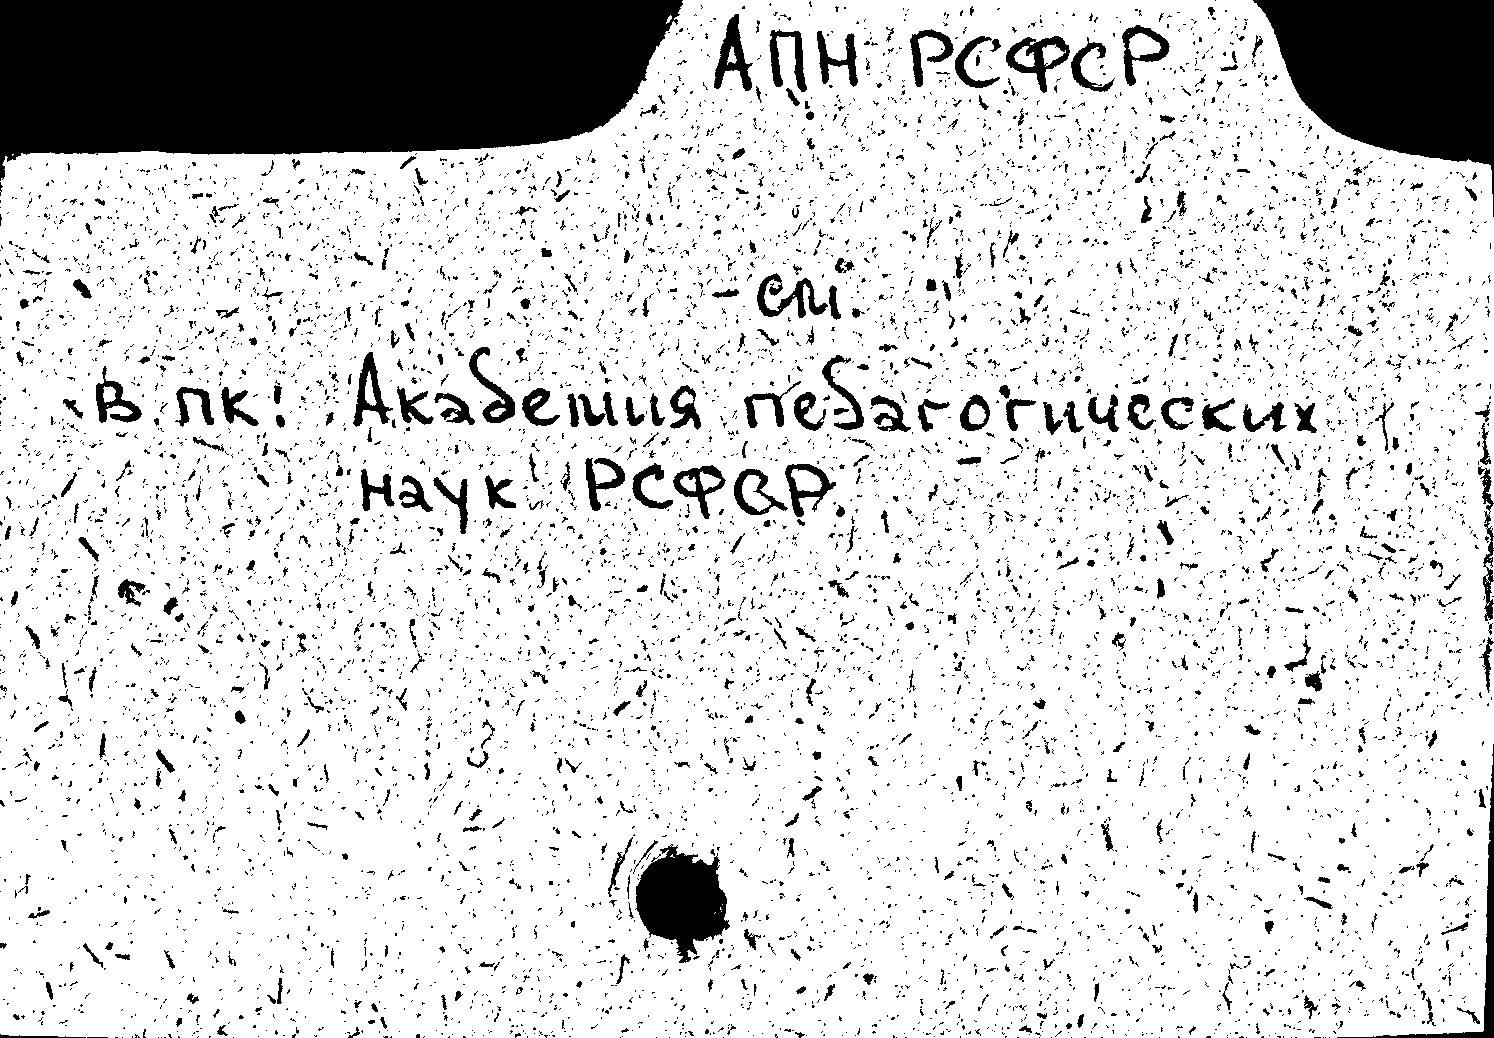 АПН РСФСР
- см.
В пк: Академия педагогических
наук РСФСР.